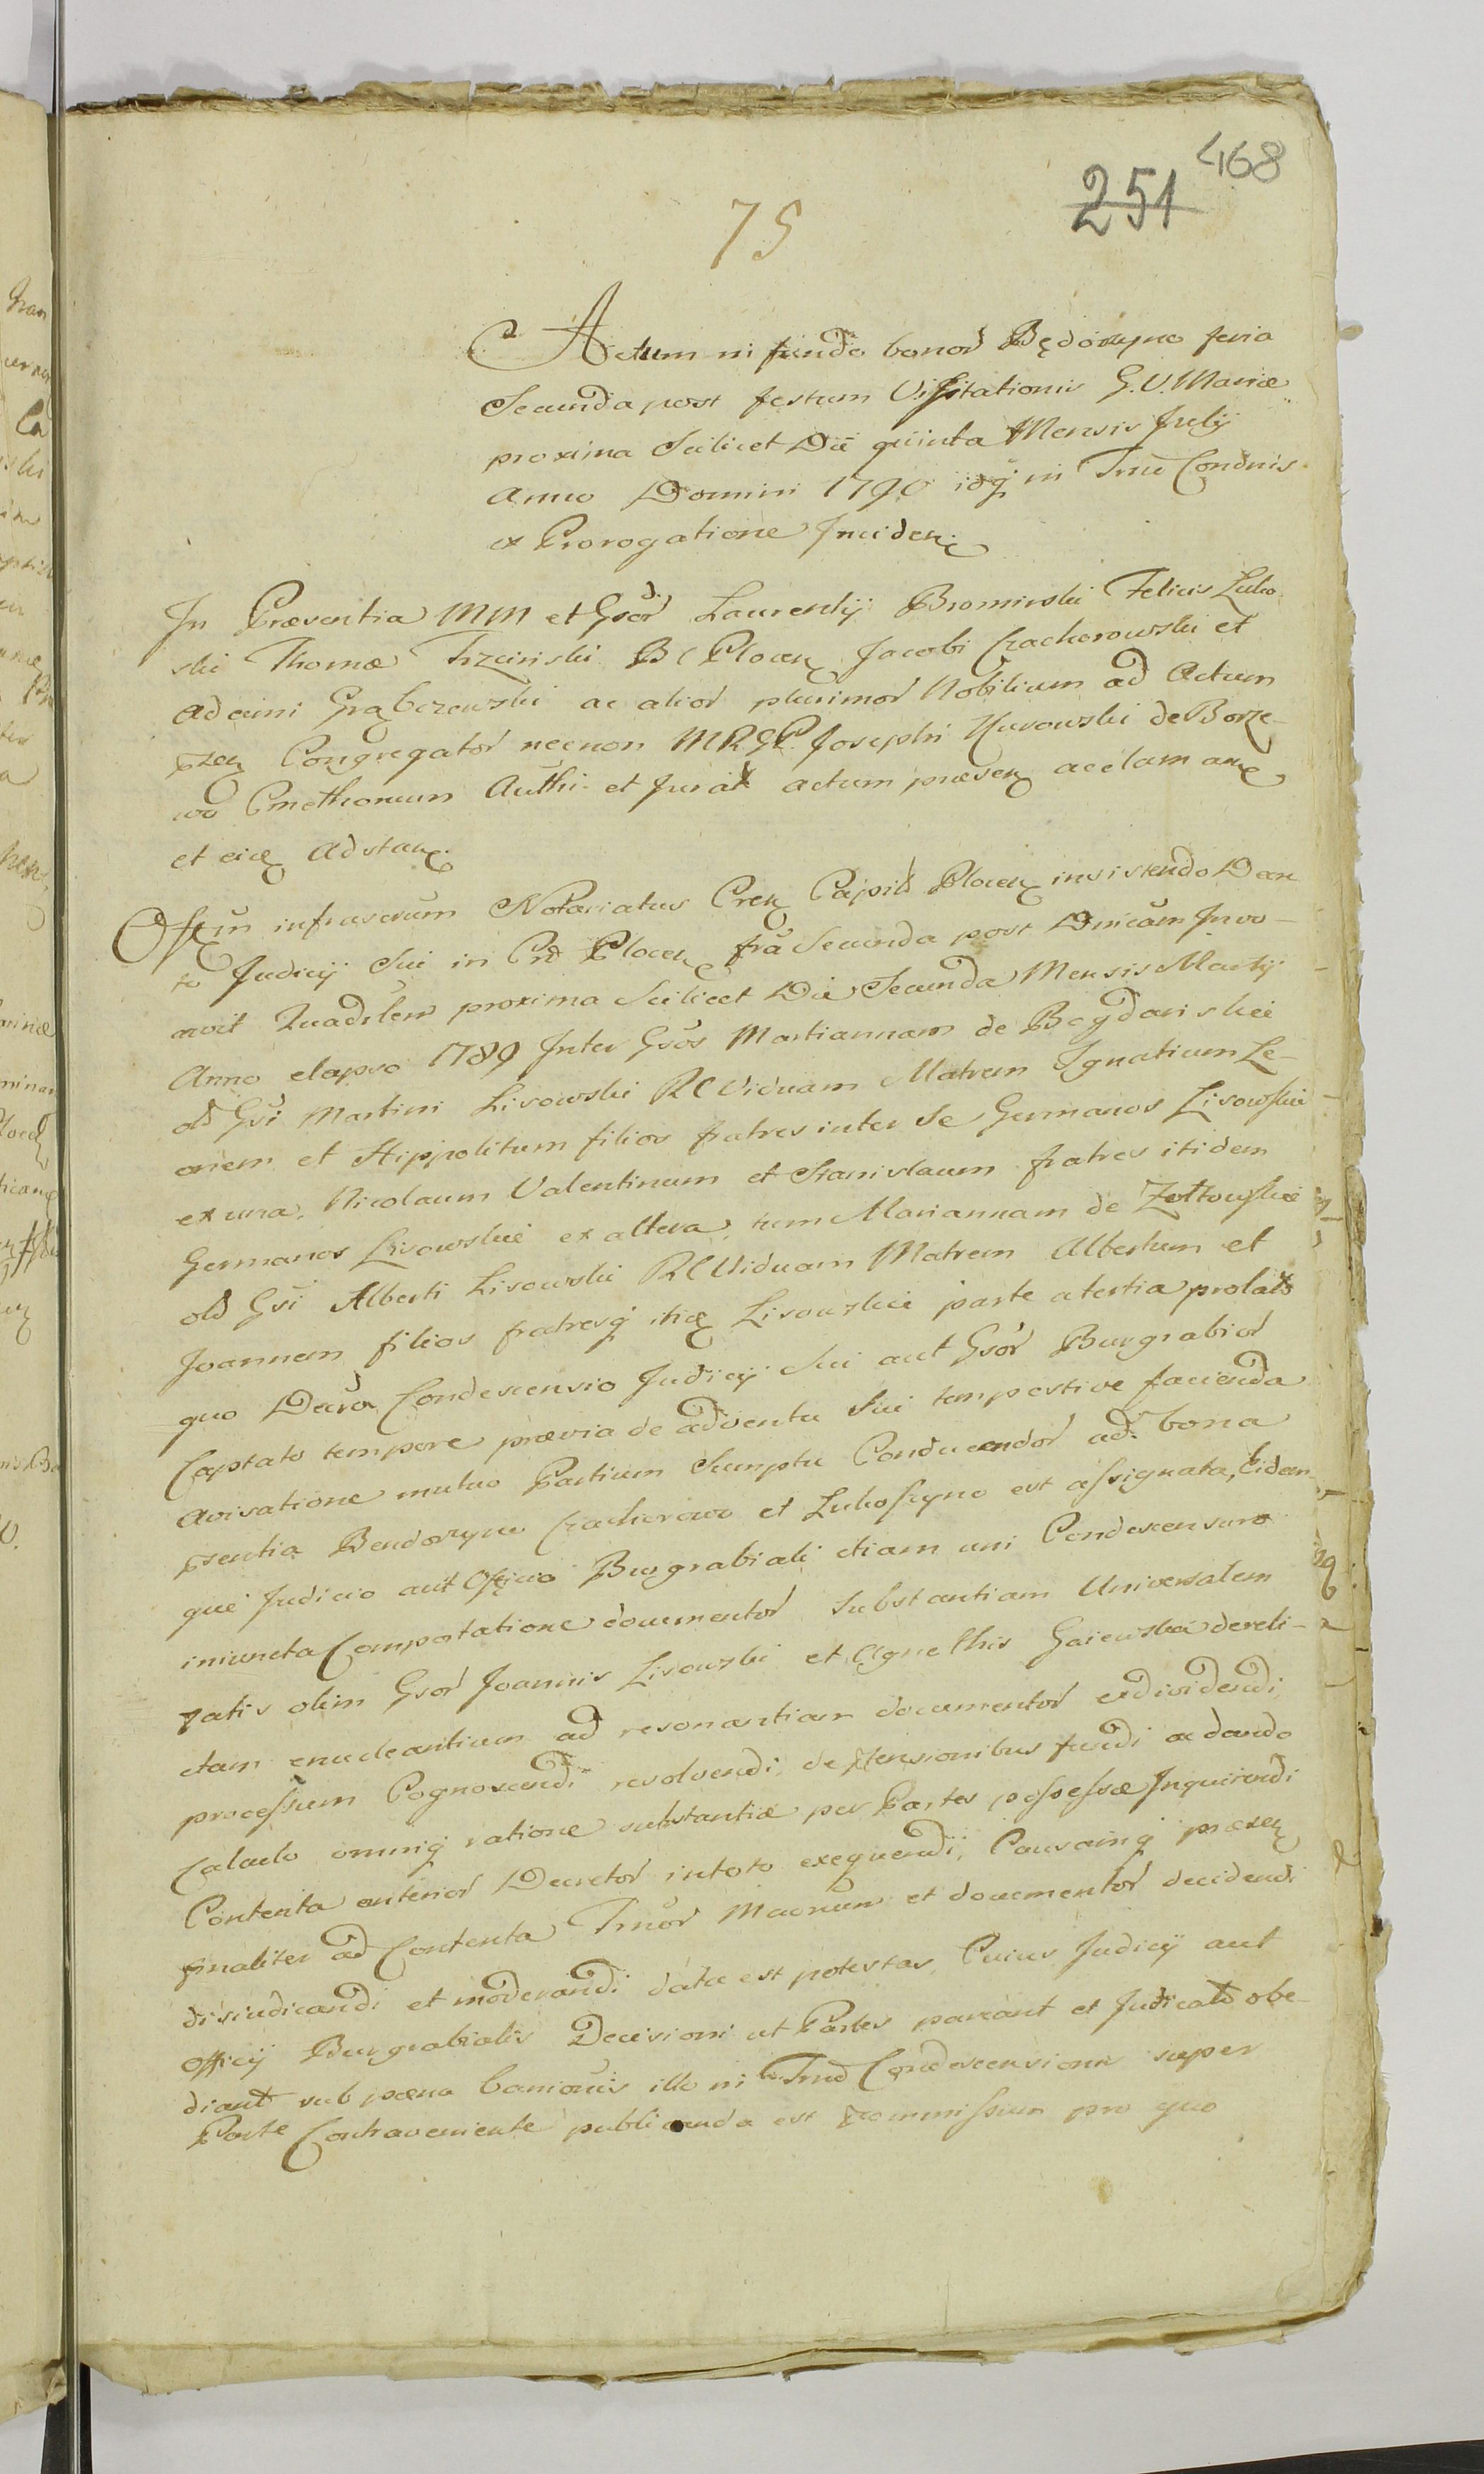 468
251
75
Actum in fundo bonor Będorzyno feria
Secunda post festum Visitationis G. V. Mariæ
proxima Scilicet Die quinta Mensis Julij
Anno Domini 1790 idq in Trno Condnis
ex Prorogatione Inciden
In Præsentia MM et Gsor Laurentij Bromirski Felicis Lubo
ski Thomæ Trzcinski BC Plocen Jacobi Czachorowski et
Adami Grąbczewski ac alior plurimor Nobilium ad Actum
pzen Congregator necnon MRGP. Josephi Kurowski de Borze-
wo Cmethonum Authi et Jurat actum præsen acclaman
et circ Adstan
Offm infrascrum Notariatus Cren Capit Plocen insistendo Decre
to Judicij Sui in Cro Plocen fra Secunda post Dnicam Invo-
avit Quadrlem proxima Scilicet Die Secunda Mensis Martij
Anno elapso 1789 Inter Gsos Martiannam de Bogdanskie
old Gsi Martini Lisowski RC Viduam Matrem Ignatium Le-
onem et Hippolitum filios fratres inter se Germanos Lisowskie
ex una, Nicolaum Valentinum et Stanislaum fratres itidem
Germanos Lisowskie ex altera, tum Mariannam de Zołtowskie
old Gsi Alberti Lisowski RC Viduam Matrem Albertum et
Joannem filios fratresq itid Lisowskie parte a tertia prolato
quo Decreto Condescensio Judicij Sui aut Gsor Burgrabior
Captato tempore prævia de adventu Sui tempestive facienda
avisatione mutuo Partium Sumptu Conducendor ad bona
psentia Bendorzyno Czachorowo et Luboszyno est assignata, Eidem-
que Judicio aut Officio Burgrabiali etiam uni Condescensuro
iniuncta Comportatione documentor Substantiam Universalem
relatis olim Gsor Joannis Lisowski et Agnethis Gaiewska dereli-
ctam enucleantium ad resonantiam documentor exdividendi,
processum Cognoscendi revolvendi, de ptensionibus fundi ac dando
Calculo omniq ratione substantiæ per Partes possessæ Inquirendi
Contenta anterior Decretor in toto exequendi, Causamq præsen
finaliter ad Contenta Trnor Maonum et documentor decidendi
diiudicandi et moderandi data est potestas, Cuius Judicij aut
Officij Burgrabialis Decisioni ut Partes pareant et Judicato obe-
diant sub pæna banionis illo in Trno Condescensionis super
Parte Contraveniente publicanda est pommissum pro quo